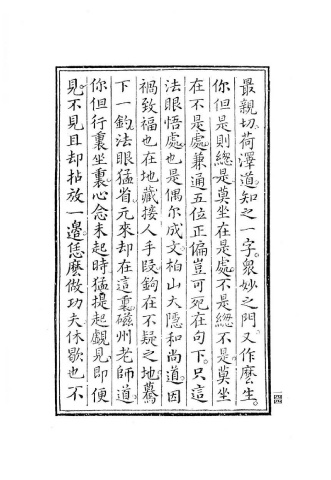 最親切。荷澤道。知之一字。衆妙之門。又作麽生。
你但是則緫是。莫坐在是處。不是緫不是。莫坐
在不是處。兼通五位正偏。豈可死在句下。只這
法眼悟處。也是偶尔成文。柏山大隱和尚道。因
禍致福。也在地藏接人手段。鉤在不疑之地。驀
下一鈎。法眼猛省。元來却在這裏。磁州老師道。
你但行裏坐裏。心念未起時。猛提起覷見。即便
見。不見且却拈放一邊。恁麽做功夫。休歇也不
一四四